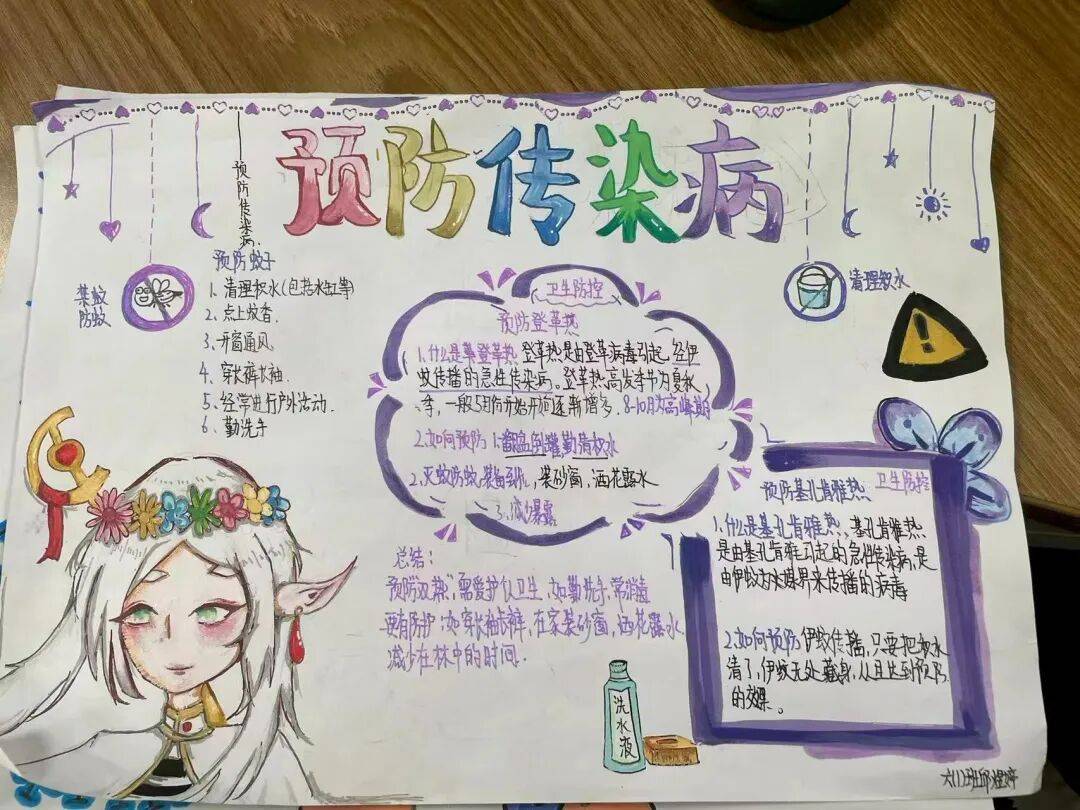 预防传染病
预防传染病.
预防蚊子
1、清理积水(包括水缸等)
2、点上蚊香.
3、开窗通风、
4、穿长裤长袖.
5、经常进行户外活动.
6、勤洗手
防蚊
清理积水
卫生防控
预防登革热
1、什么是登革热 登革热是由登革病毒引起,经伊
蚊传播的急性传染病。登革热高发季节为夏秋
季,一般5月份开始逐渐增多,8-10月为高峰期
2、如何预防 1、翻盆倒罐勤清积水
2、灭蚊防蚊,装砂窗,洒花露水
3、减少暴露
总结:
预防双热,需爱护卫生,如勤洗手,常消毒
更有防护:如穿长袖长裤,在家装砂窗,洒花露水
减少在林中的时间.
预防基孔肯雅热
卫生防控
1、什么是基孔肯雅热,基孔肯雅热
是由基孔肯雅引起的急性传染病,是
由伊蚊为水媒界来传播的病毒
2、如何预防伊蚊传播,只要把积水
清了,伊蚊无处藏身,从且达到预防
的效果。
洗水液
六(1)班邱